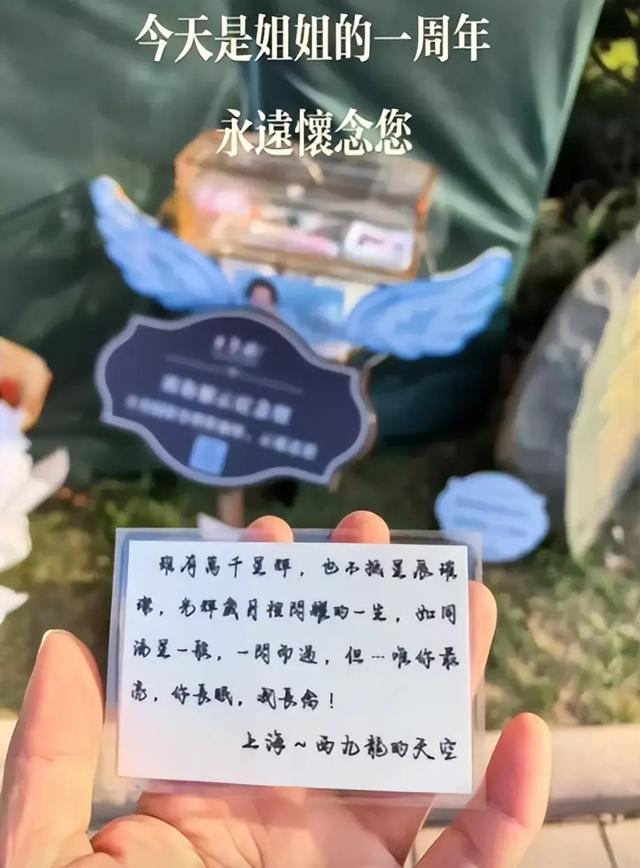 今天是姐姐的一周年
永遠懷念您
雖有萬千星輝，也不抵星辰璀
璨，光輝歲月裡閃耀的一生，如同
流星一般，一閃而過，但…唯你最
亮，你長眠，我長念！
上海~西九龍的天空